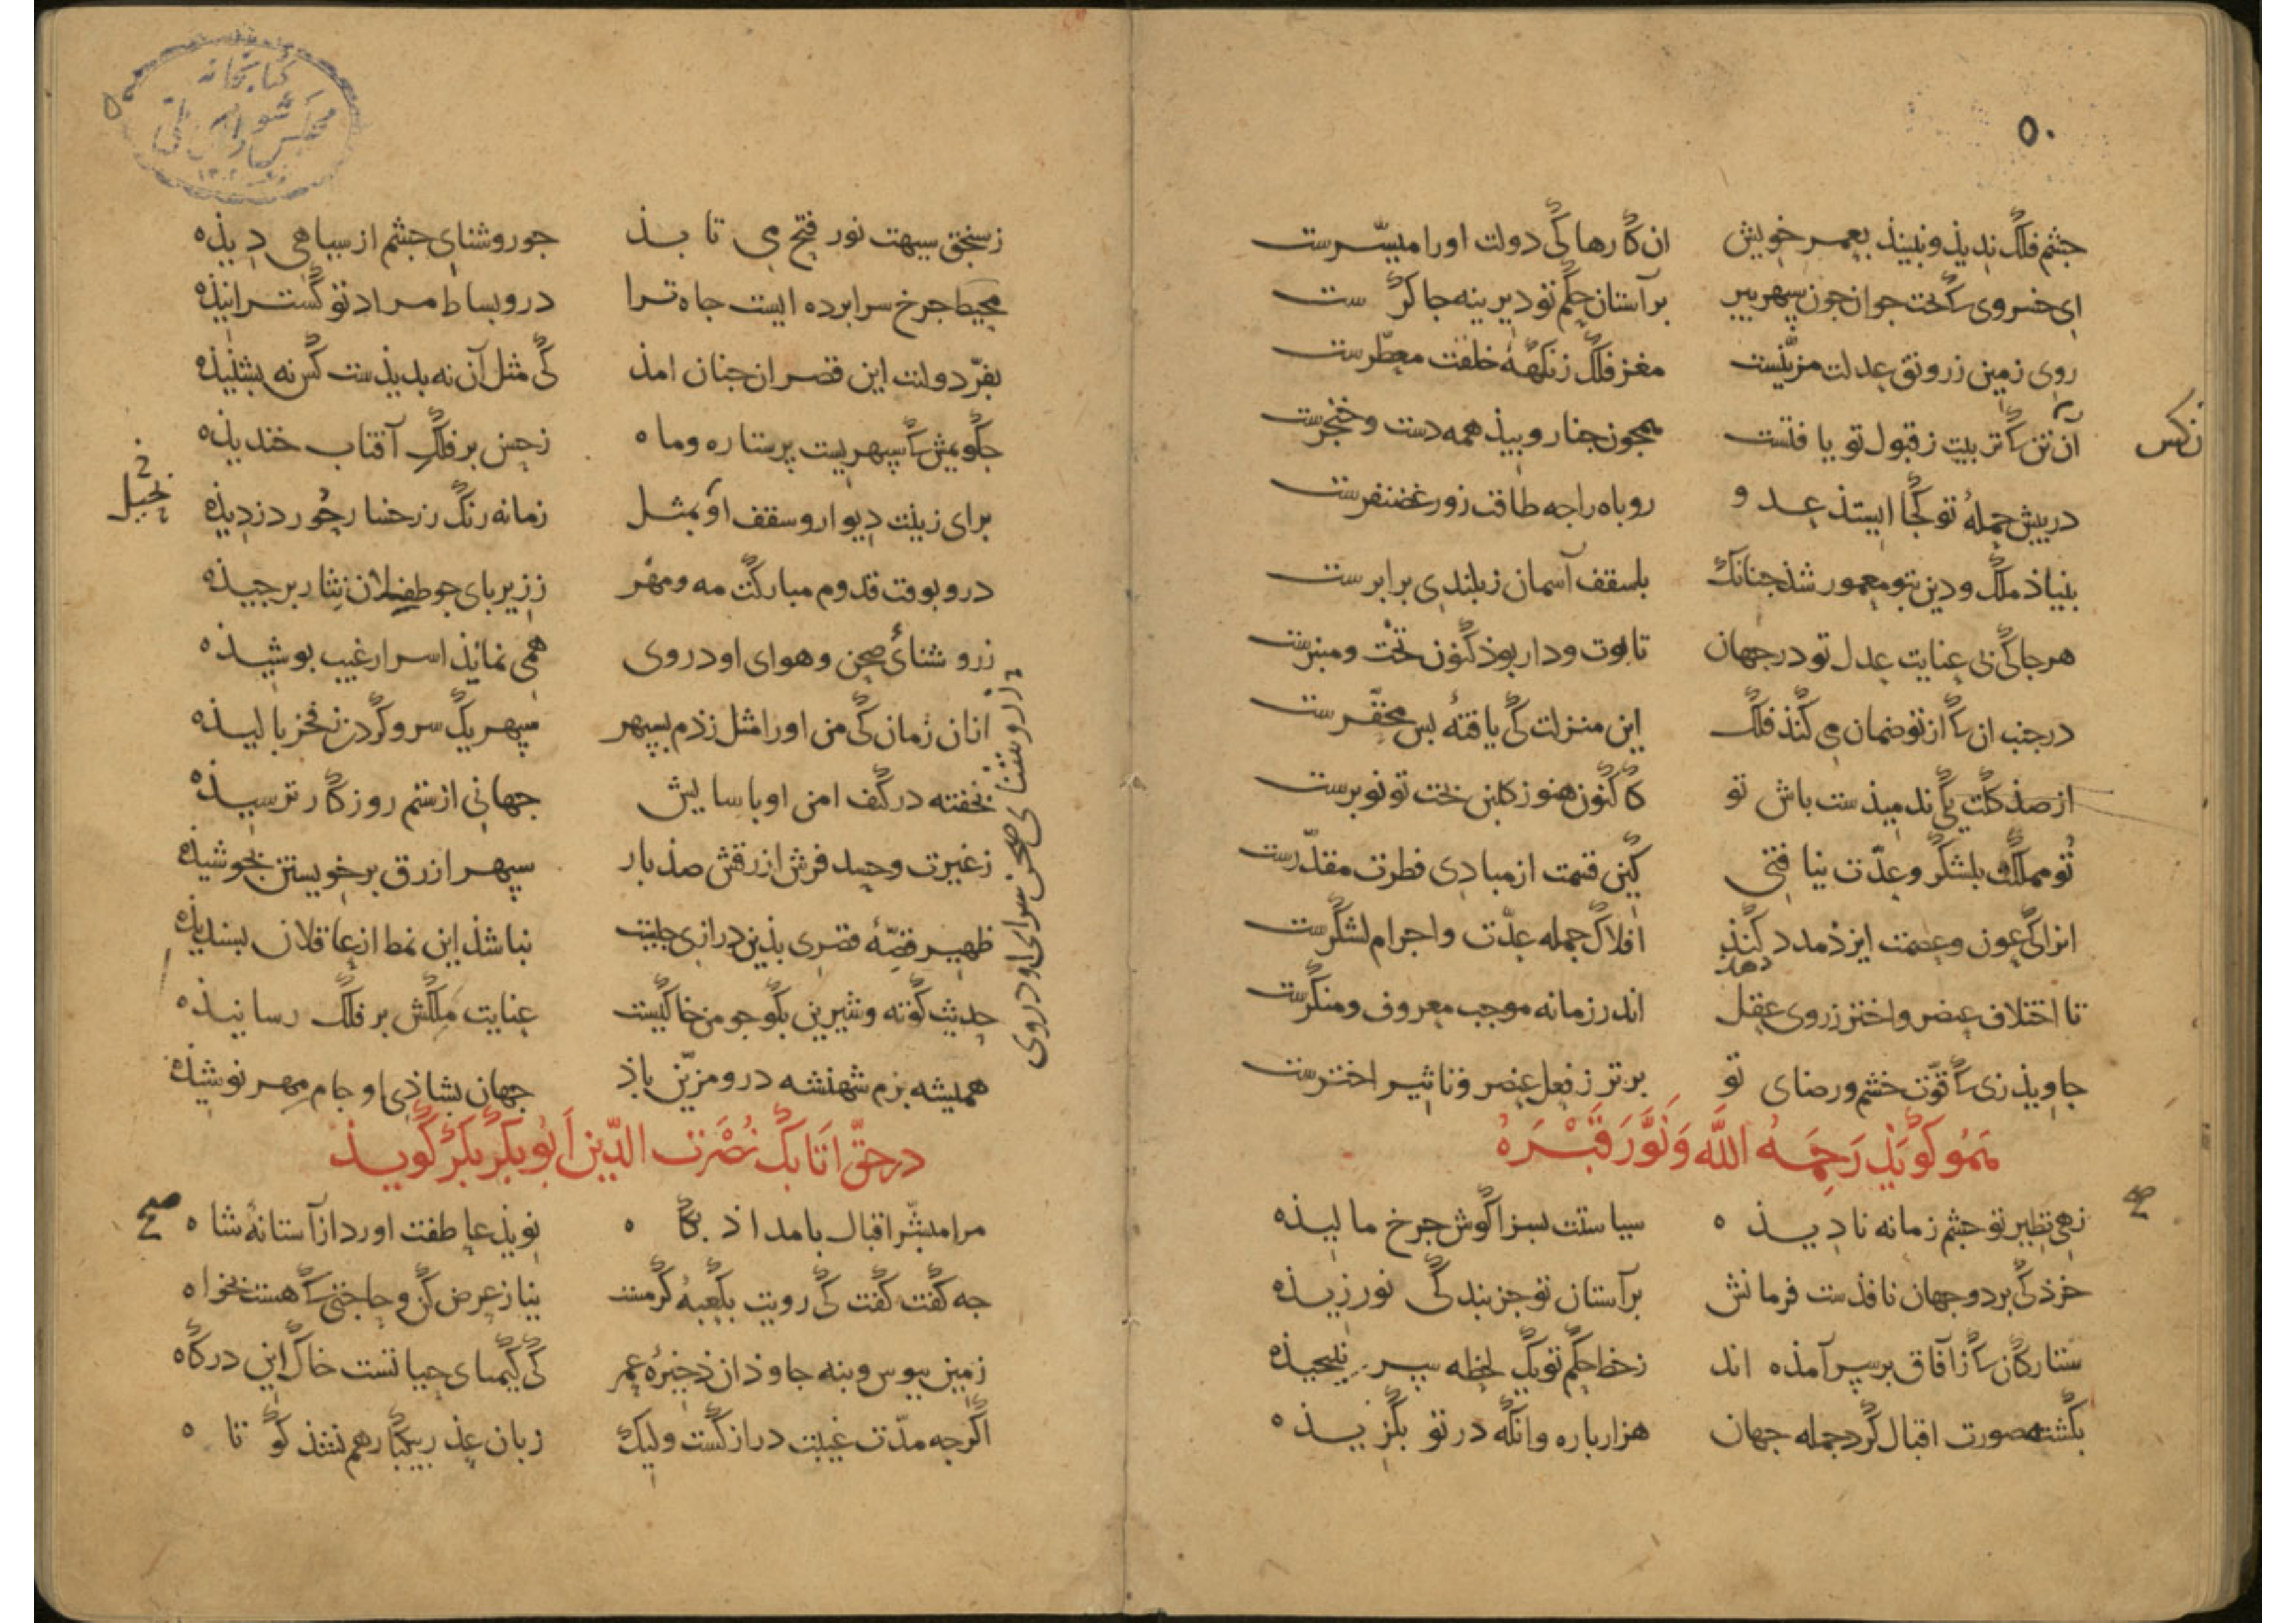 ۵۰
جشم فلک ندیذ و نبیند بعمر خویش ان کارها کی دولت اورا میسّرست
ای خسروی کبخت جوان جون سپهر بیر بر آستان حکم تو دیرینه جاکر ست
روی زمین ز رونق عدلت مزیّنست مغز فلک ز نکهۀ خلقت معطّرست
آن تن کتربیت ز قبول تو یافتست همجون جنار و بیذ همه دست و خنجرست
در بیش حملۀ تو کجا ایستذ عدو روباه را جه طاقت زور غضنفرست
بنیاذ ملک و دین بتو معمور شذ جنانک با سقف آسمان ز بلندی برابرست
هر جا کی بی عنایت عدل تو در جهان تابوت و دار بوذ کنون تخت و منبرست
در جنب ان کاز تو ضمان می کنذ فلک این منزلت کی یافتۀ بس محقّرست
از صذ کلت یکی ندمیذست باش تو کاکنون هنوز کلبن بخت تو نوبرست
تو مملکت بلشکر و عدّت نیافتی کین قسمت از مبادی فطرت مقدّرست
انرا کی عون و عصمت ایزذ مدد کنذ افلاک جمله عدّت و اجرام لشکرست
دهد
تا اختلاف عنصر و اختر ز روی عقل اندر زمانه موجب معروف و منکرست
جاویذ زی کقوّت خشم و رضای تو برتر ز فعل عنصر و تاثیر اخترست
هَمُو کَویَذ رَحِمَهُ اللّه وَنَوَّرَ قَبْرَهُ
زهی نظیر تو جشم زمانه نادیذه سیاستت بسزا کوش جرخ مالیذه
خرذ کی بر دو جهان نافذست فرمانش بر آستان تو جز بندکی نورزیذه
ستارکان کاز آفاق برسر آمذه اند ز خط حکم تو یک لحظه سر نبیجیذه
بکشته صورت اقبال کرد جمله جهان هزار باره وانکه در تو بکزیذه
نکس
ز سنجق سیهت نور فتح می تابذ جو روشنای جشم از سیاهی دیذه
محیط جرخ سرابرده ایست جاه ترا درو بساط مراد تو کسترانیذه
بفرّ دولت این قصر ان جنان امذ کی مثل آن نه بدیذست کس نه بشنیذه
جکویمش کسپهریست پرستاره و ماه ز حسن بر فلک آفتاب خندیذه
برای زینت دیوار و سقف او بمثل زمانه رنک ز رخسار حور دزدیذه
درو بوقت قدوم مبارکت مه و مهر ز زیر بای جو طفلان نثار برجیذه
ز روشنائ صحن و هوای او در وی همی نمانذ اسرار غیب بوشیذه
ازان زمان کی من اورا مثل زذم بسپهر سپهر یک سر و کردن ز فخر بالیذه
بخفته در کنف امن او باسایش جهانی از ستم روزکار ترسیذه
ز غیرت و حسد فرش ازرقش صذ بار سپهر ازرق بر خویستن بجوشیذه
ظهیر قصّۀ قصری بذین درازی جیست نباشذ این نمط از عاقلان بسندیذه
حدیث کوته و شیرین بکو جو من خاکیست عنایت ملکش بر فلک رسانیذه
همیشه بزم شهنشه درو مزیّن باذ جهان بشاذی او جام مهر نوشیذه
در حقّ اتابک نُصْرَت الدّین اَبوبکر بکر کویذ
مرا مبشّر اقبال بامداذ بکاه نویذ عاطفت اورد از آستانۀ شاه
جه کفت کفت کی رویت بکعبۀ کرمست نیاز عرض کن و حاجتی کهست بخواه
زمین ببوس و بنه جاوذان ذخیرۀ عمر کی کیمیای حیاتست خاک این درکاه
اکرجه مدّت غیبت دراز کشت ولیک زبان عذر بیکبار هم نشذ کوتاه
ز روشنای صحن سرای او در وی
کتابخانه
مجلس شورای ملی